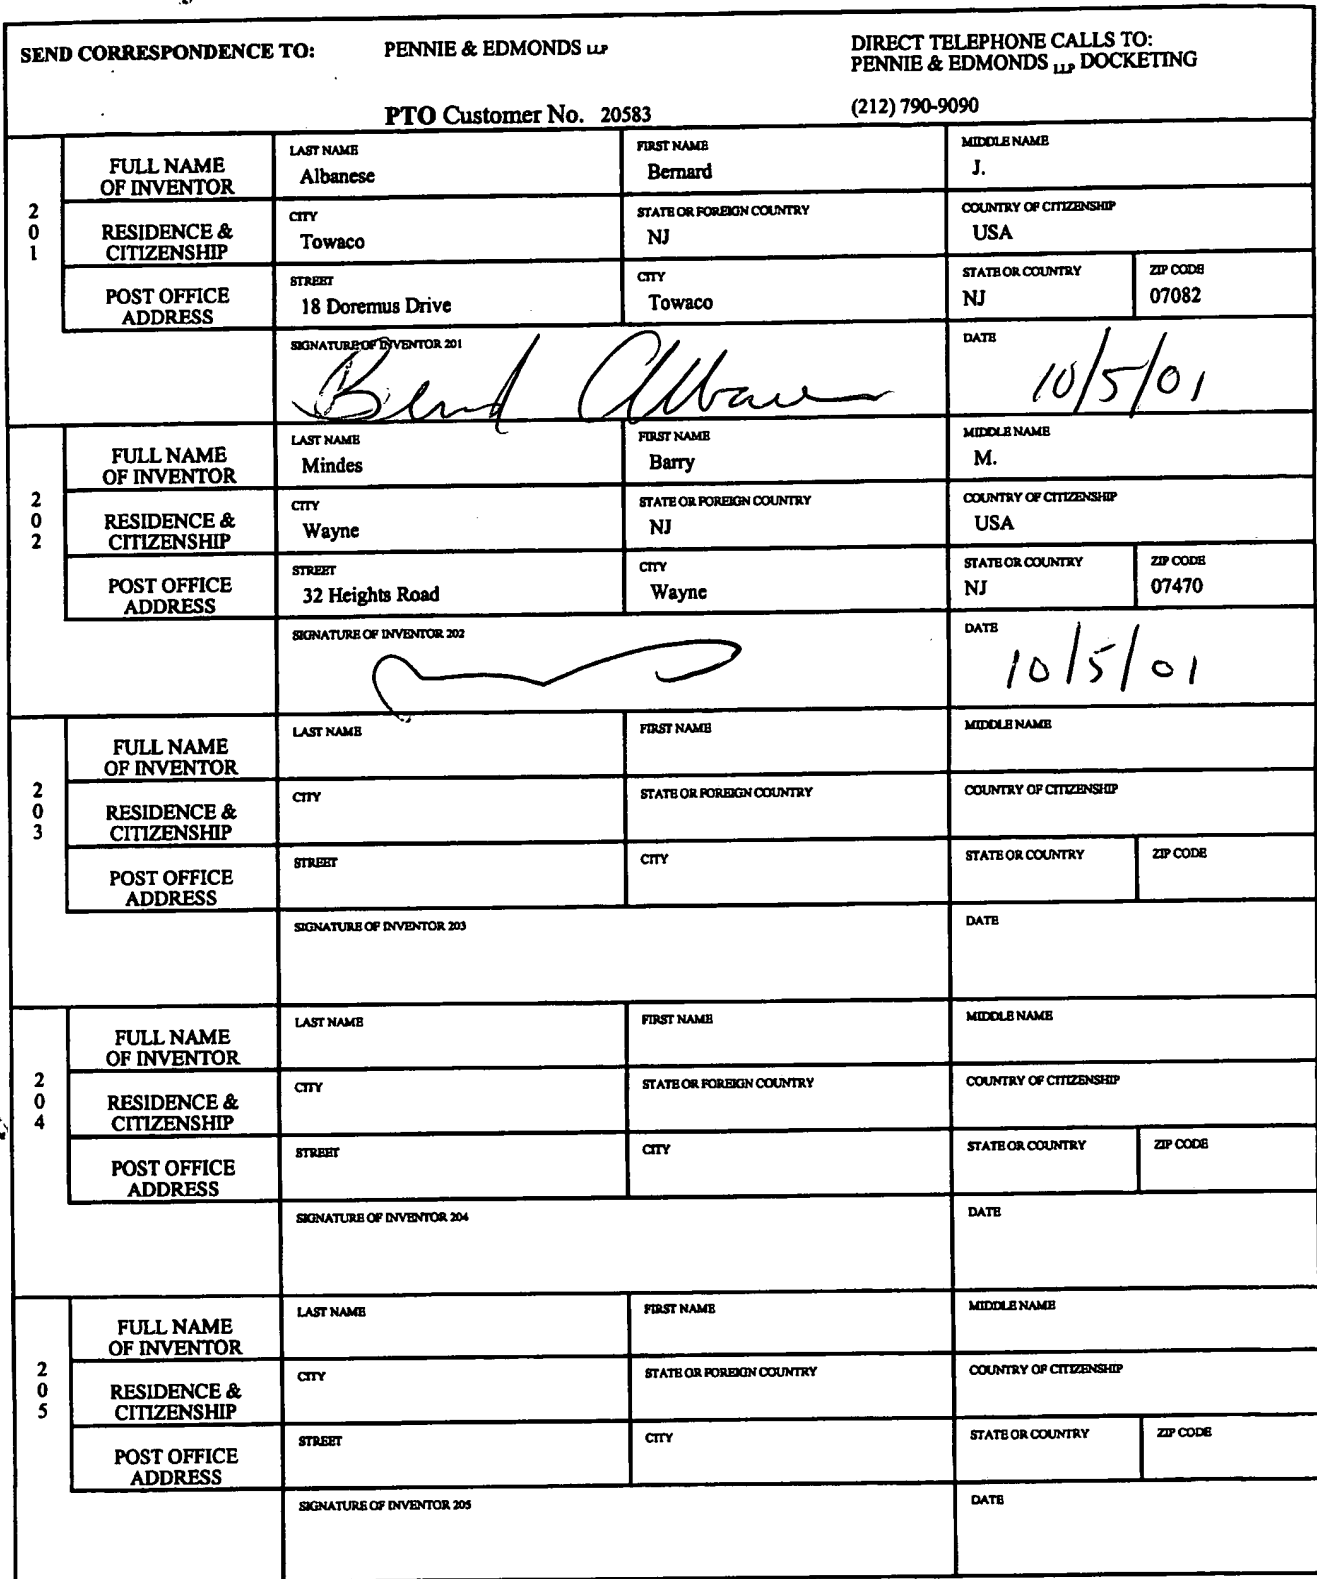 SEND CORRESPONDENCE TO: PENNIE & EDMONDS LLP DIRECT TELEPHONE CALLS TO:
PENNIE & EDMONDS LLP DOCKETING
PTO Customer No. 20583 (212) 790-9090
2 0 1
FULL NAME OF INVENTOR
LAST NAME FIRST NAME MIDDLE NAME
Albanese Bernard J.
RESIDENCE & CITIZENSHIP
CITY STATE OR FOREIGN COUNTRY COUNTRY OF CITIZENSHIP
Towaco NJ USA
POST OFFICE ADDRESS
STREET CITY STATE OR COUNTRY ZIP CODE
18 Doremus Drive Towaco NJ 07082
SIGNATURE OF INVENTOR 201 DATE
10/5/01
2 0 2
FULL NAME OF INVENTOR
LAST NAME FIRST NAME MIDDLE NAME
Mindes Barry M.
RESIDENCE & CITIZENSHIP
CITY STATE OR FOREIGN COUNTRY COUNTRY OF CITIZENSHIP
Wayne NJ USA
POST OFFICE ADDRESS
STREET CITY STATE OR COUNTRY ZIP CODE
32 Heights Road Wayne NJ 07470
SIGNATURE OF INVENTOR 202 DATE
10/5/01
2 0 3
FULL NAME OF INVENTOR
LAST NAME FIRST NAME MIDDLE NAME
RESIDENCE & CITIZENSHIP
CITY STATE OR FOREIGN COUNTRY COUNTRY OF CITIZENSHIP
POST OFFICE ADDRESS
STREET CITY STATE OR COUNTRY ZIP CODE
SIGNATURE OF INVENTOR 203 DATE
2 0 4
FULL NAME OF INVENTOR
LAST NAME FIRST NAME MIDDLE NAME
RESIDENCE & CITIZENSHIP
CITY STATE OR FOREIGN COUNTRY COUNTRY OF CITIZENSHIP
POST OFFICE ADDRESS
STREET CITY STATE OR COUNTRY ZIP CODE
SIGNATURE OF INVENTOR 204 DATE
2 0 5
FULL NAME OF INVENTOR
LAST NAME FIRST NAME MIDDLE NAME
RESIDENCE & CITIZENSHIP
CITY STATE OR FOREIGN COUNTRY COUNTRY OF CITIZENSHIP
POST OFFICE ADDRESS
STREET CITY STATE OR COUNTRY ZIP CODE
SIGNATURE OF INVENTOR 205 DATE